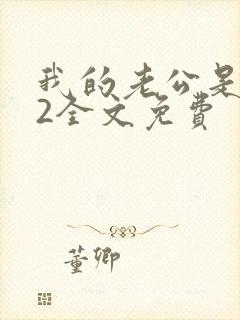 我的老公是
2全文免费
董卿